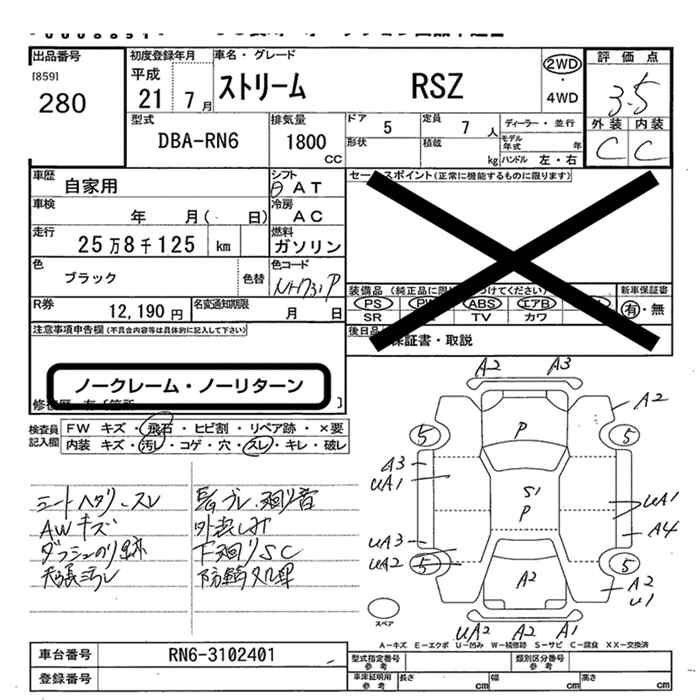 出品番号
[859]
280
初度登録年月
平成
21 7月
車名・グレード
ストリーム RSZ
2WD
・
4WD
評価点
3.5
外装 内装
C C
型式
DBA-RN6
排気量
1800
CC
ドア 5
定員 7 人
ディーラー・並行
形状
積載 kg
モデル年式 年
ハンドル 左・右
車歴
自家用
シフト
AT
車検
年 月( 日)
冷房
AC
走行
25万8千125 km
燃料
ガソリン
色
ブラック
色替
色コード
NH731P
R券
12,190円
名変通知期限
月 日
セールスポイント(正常に機能するものに限ります)
装備品
PS PW ABS エアB
SR TV カワ
新車保証書
有・無
後日品
保証書・取説
注意事項申告欄(不具合内容等は具体的に記入して下さい)
ノークレーム・ノーリターン
修復歴
検査員記入欄
FW キズ・飛石・ヒビ割・リペア跡・×要
内装 キズ・汚レ・コゲ・穴・スレ・キレ・破レ
シートヘタリ、スレ
AWキズ
ダッシュのり跡
天張汚レ
外装しみ
下廻りSC
防錆処理
A2 A3
A2
5 5
P
A3
UA1
S1
P
UA1
A4
UA3
UA2
5 5
A2
A2
U1
スペア
UA2 A2 A1
A-キズ E-エクボ U-凹み W-補修跡 S-サビ C-腐食 XX-交換済
車台番号
RN6-3102401
登録番号
型式指定番号
参考
類別区分番号
参考
車庫証明用
参考
長さ cm
幅 cm
高さ cm